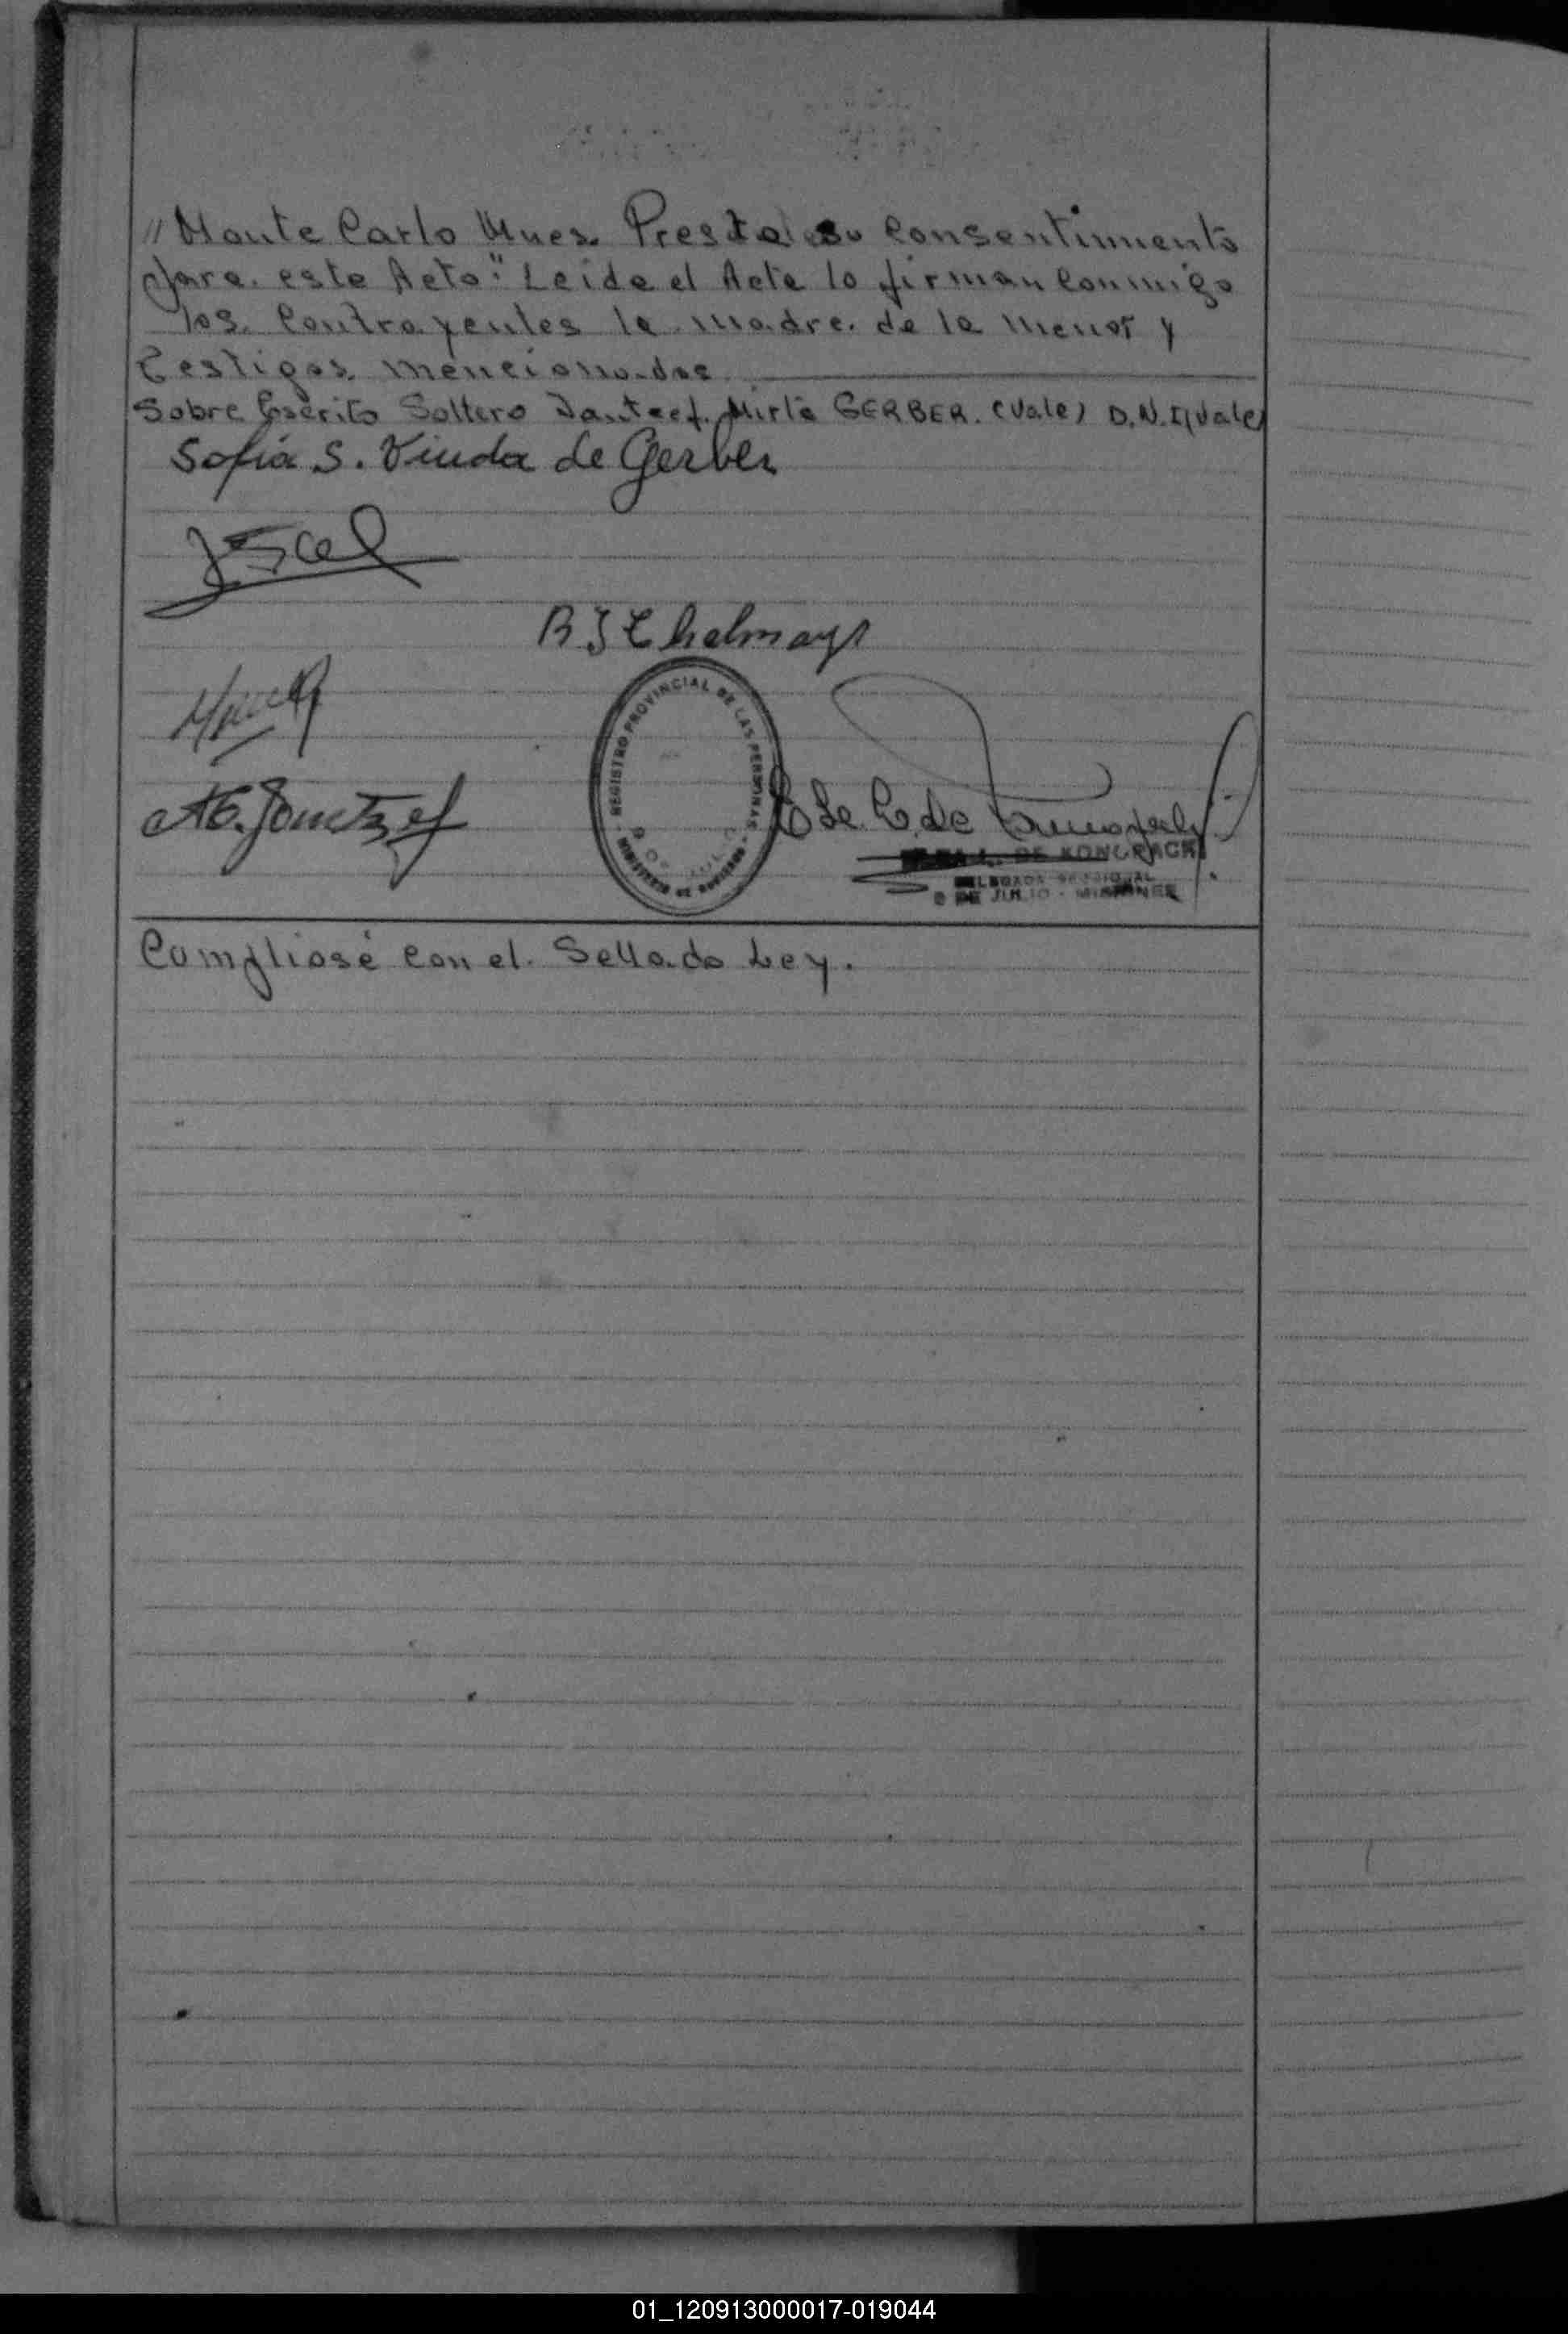 "Monte Carlo Mnes. Presta su Consentimiento
para este Acto". Leida el Acta lo firman Conmigo
los Contrayentes la madre de la menor y
Testigos mencionados
Sobre Escrito Soltero Mirta GERBER. (Vale) D.N.I (Vale)
Sofía S. Viuda de Gerber
REGISTRO PROVINCIAL DE LAS PERSONAS
MINISTERIO DE GOBIERNO
DE KONGRACK
DELEGADA SECCIONAL
9 DE JULIO - MISIONES
Cumpliosé con el Sellado Ley.
01_120913000017-019044